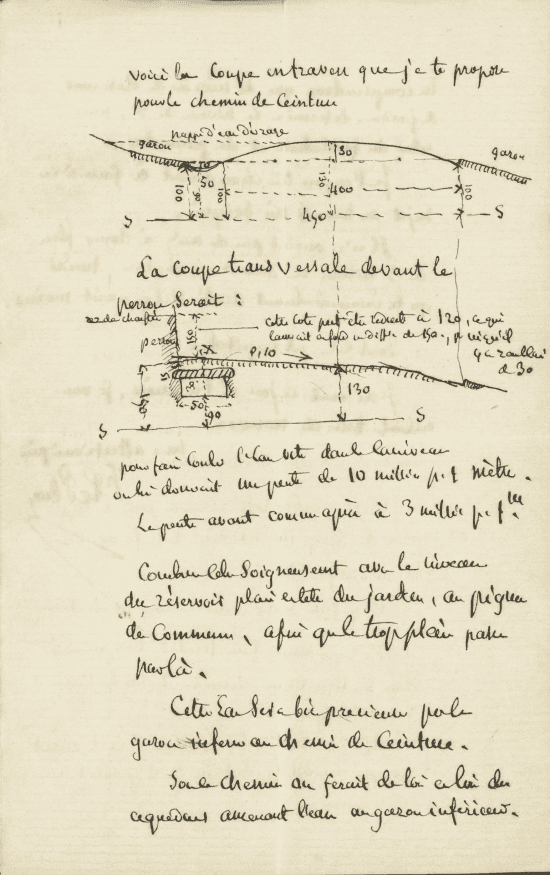 Voici la Coupe en travers que je te propose
pour le chemin de Ceinture
nappe d'eau d'orage
gazon
30
gazon
10
50
100
90
100
130
400
100
490
S
S
La Coupe transversale devant le
perron serait :
rez de chaussée
perron
150
cette cote peut être réduite à 120, ce qui
0,10
de 30
15
15
150
50
90
130
S
S
pour faire couler l'eau vite dans le caniveau
on lui donnerait une pente de 10 millim p. mètre.
La pente avant commençait à 3 millim p. m
Combiner le tout soigneusement avec le niveau
du réservoir placé en tête du jardin, au pignon
de Commun, afin que le trop plein passe
par là.
Cette Eau sera bien précieuse pour le
gazon inférieur au chemin de Ceinture.
Sous le chemin on ferait de loin en loin des
aqueducs amenant l'eau au gazon inférieur.